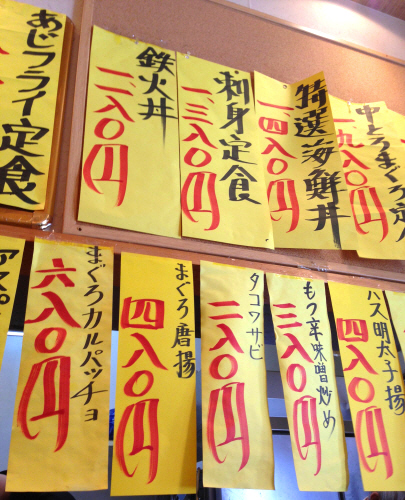 あじフライ定食
鉄火丼
一、二八〇円
刺身定食
一、三八〇円
特選海鮮丼
一、四八〇円
中とろまぐろ
一、九八〇円
まぐろカルパッチョ
六八〇円
まぐろ唐揚
四八〇円
タコワサビ
二八〇円
もつ辛味噌炒め
三八〇円
ハス明太子揚
四八〇円